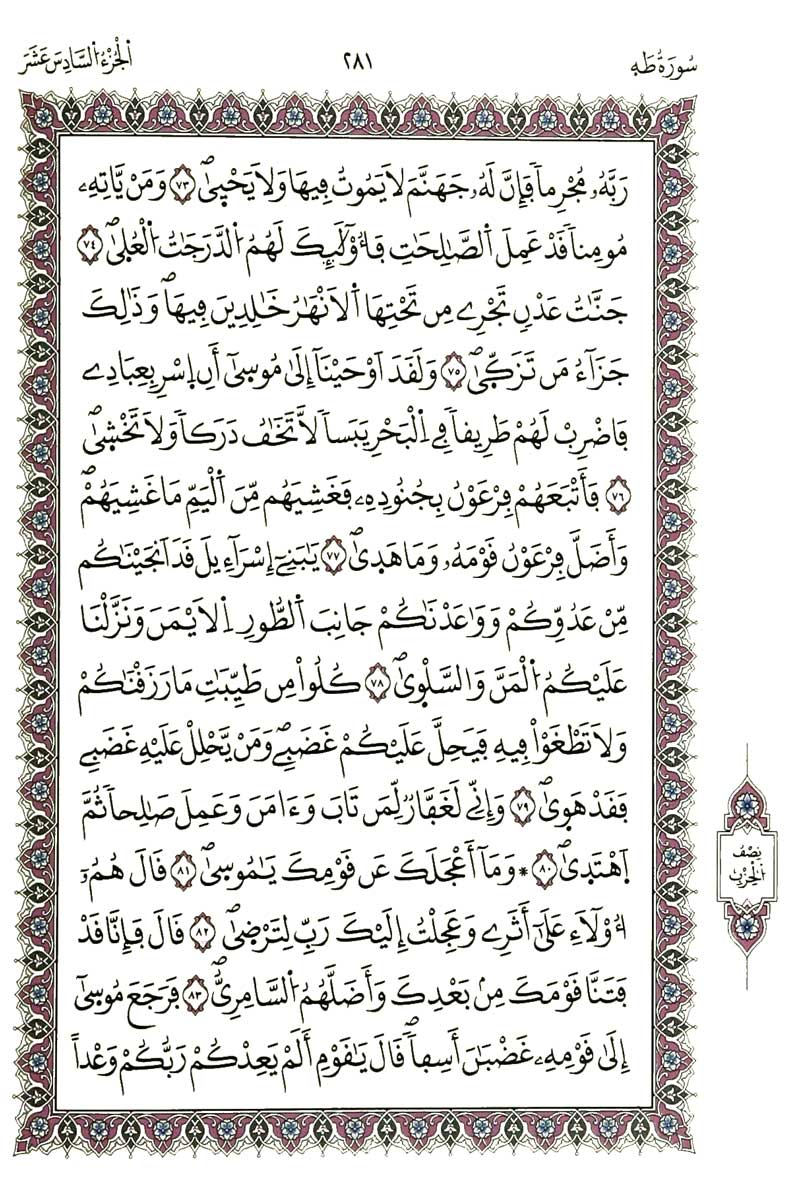 سُورَةُ طَهَ
٢٨١
اَلْجُزْءُ اَلسَّادِسَ عَشَرَ
رَبَّهُۥ مُجْرِماٗ فَإِنَّ لَهُۥ جَهَنَّمَ لَا يَمُوتُ فِيهَا وَلَا يَحْيۭيٰۖ ٧٣ وَمَنْ يَّاتِهِۦ
مُومِناٗ قَدْ عَمِلَ اَ۬لصَّٰلِحَٰتِ فَأُوْلَٰٓئِكَ لَهُمُ اُ۬لدَّرَجَٰتُ اُ۬لْعُلۭيٰۖ ٧٤
جَنَّٰتُ عَدْنٖ تَجْرِے مِن تَحْتِهَا اَ۬لَانْهَٰرُ خَٰلِدِينَ فِيهَاۖ وَذَٰلِكَ
جَزَآءُ مَن تَزَكّۭيٰۖ ٧٥ وَلَقَدَ اَوْحَيْنَآ إِلَيٰ مُوسۭيٰٓ أَنِ اِ۪سْرِ بِعِبَادِے
فَاضْرِبْ لَهُمْ طَرِيقاٗ فِے اِ۬لْبَحْرِ يَبَساٗ لَّا تَخَٰفُ دَرَكاٗ وَلَا تَخْشۭيٰۖ
٧٦ فَأَتْبَعَهُمْ فِرْعَوْنُ بِجُنُودِهِۦ فَغَشِيَهُم مِّنَ اَ۬لْيَمِّ مَا غَشِيَهُمْۖ
وَأَضَلَّ فِرْعَوْنُ قَوْمَهُۥ وَمَا هَدۭيٰۖ ٧٧ يَٰبَنِےٓ إِسْرَآءِيلَ قَدَ اَنجَيْنَٰكُم
مِّنْ عَدُوِّكُمْ وَوَٰعَدْنَٰكُمْ جَانِبَ اَ۬لطُّورِ اِ۬لَايْمَنَ وَنَزَّلْنَا
عَلَيْكُمُ اُ۬لْمَنَّ وَالسَّلْوۭيٰۖ ٧٨ كُلُواْ مِن طَيِّبَٰتِ مَا رَزَقْنَٰكُمْ
وَلَا تَطْغَوْاْ فِيهِ فَيَحِلَّ عَلَيْكُمْ غَضَبِےۖ وَمَنْ يَّحْلِلْ عَلَيْهِ غَضَبِے
فَقَدْ هَوۭيٰۖ ٧٩ وَإِنِّے لَغَفَّارٞ لِّمَن تَابَ وَءَامَنَ وَعَمِلَ صَٰلِحاٗ ثُمَّ
اَ۪هْتَدۭيٰۖ ٨٠ * وَمَآ أَعْجَلَكَ عَن قَوْمِكَ يَٰمُوسۭيٰۖ ٨١ قَالَ هُمُۥٓ
أُوْلَآءِ عَلَيٰٓ أَثَرِے وَعَجِلْتُ إِلَيْكَ رَبِّ لِتَرْضۭيٰۖ ٨٢ قَالَ فَإِنَّا قَدْ
فَتَنَّا قَوْمَكَ مِنۢ بَعْدِكَ وَأَضَلَّهُمُ اُ۬لسَّامِرِيُّۖ ٨٣ فَرَجَعَ مُوسۭيٰٓ
إِلَيٰ قَوْمِهِۦ غَضْبَٰنَ أَسِفاٗۖ قَالَ يَٰقَوْمِ أَلَمْ يَعِدْكُمْ رَبُّكُمْ وَعْداً
نِصْفُ
اُ۬لْحِزْبِ